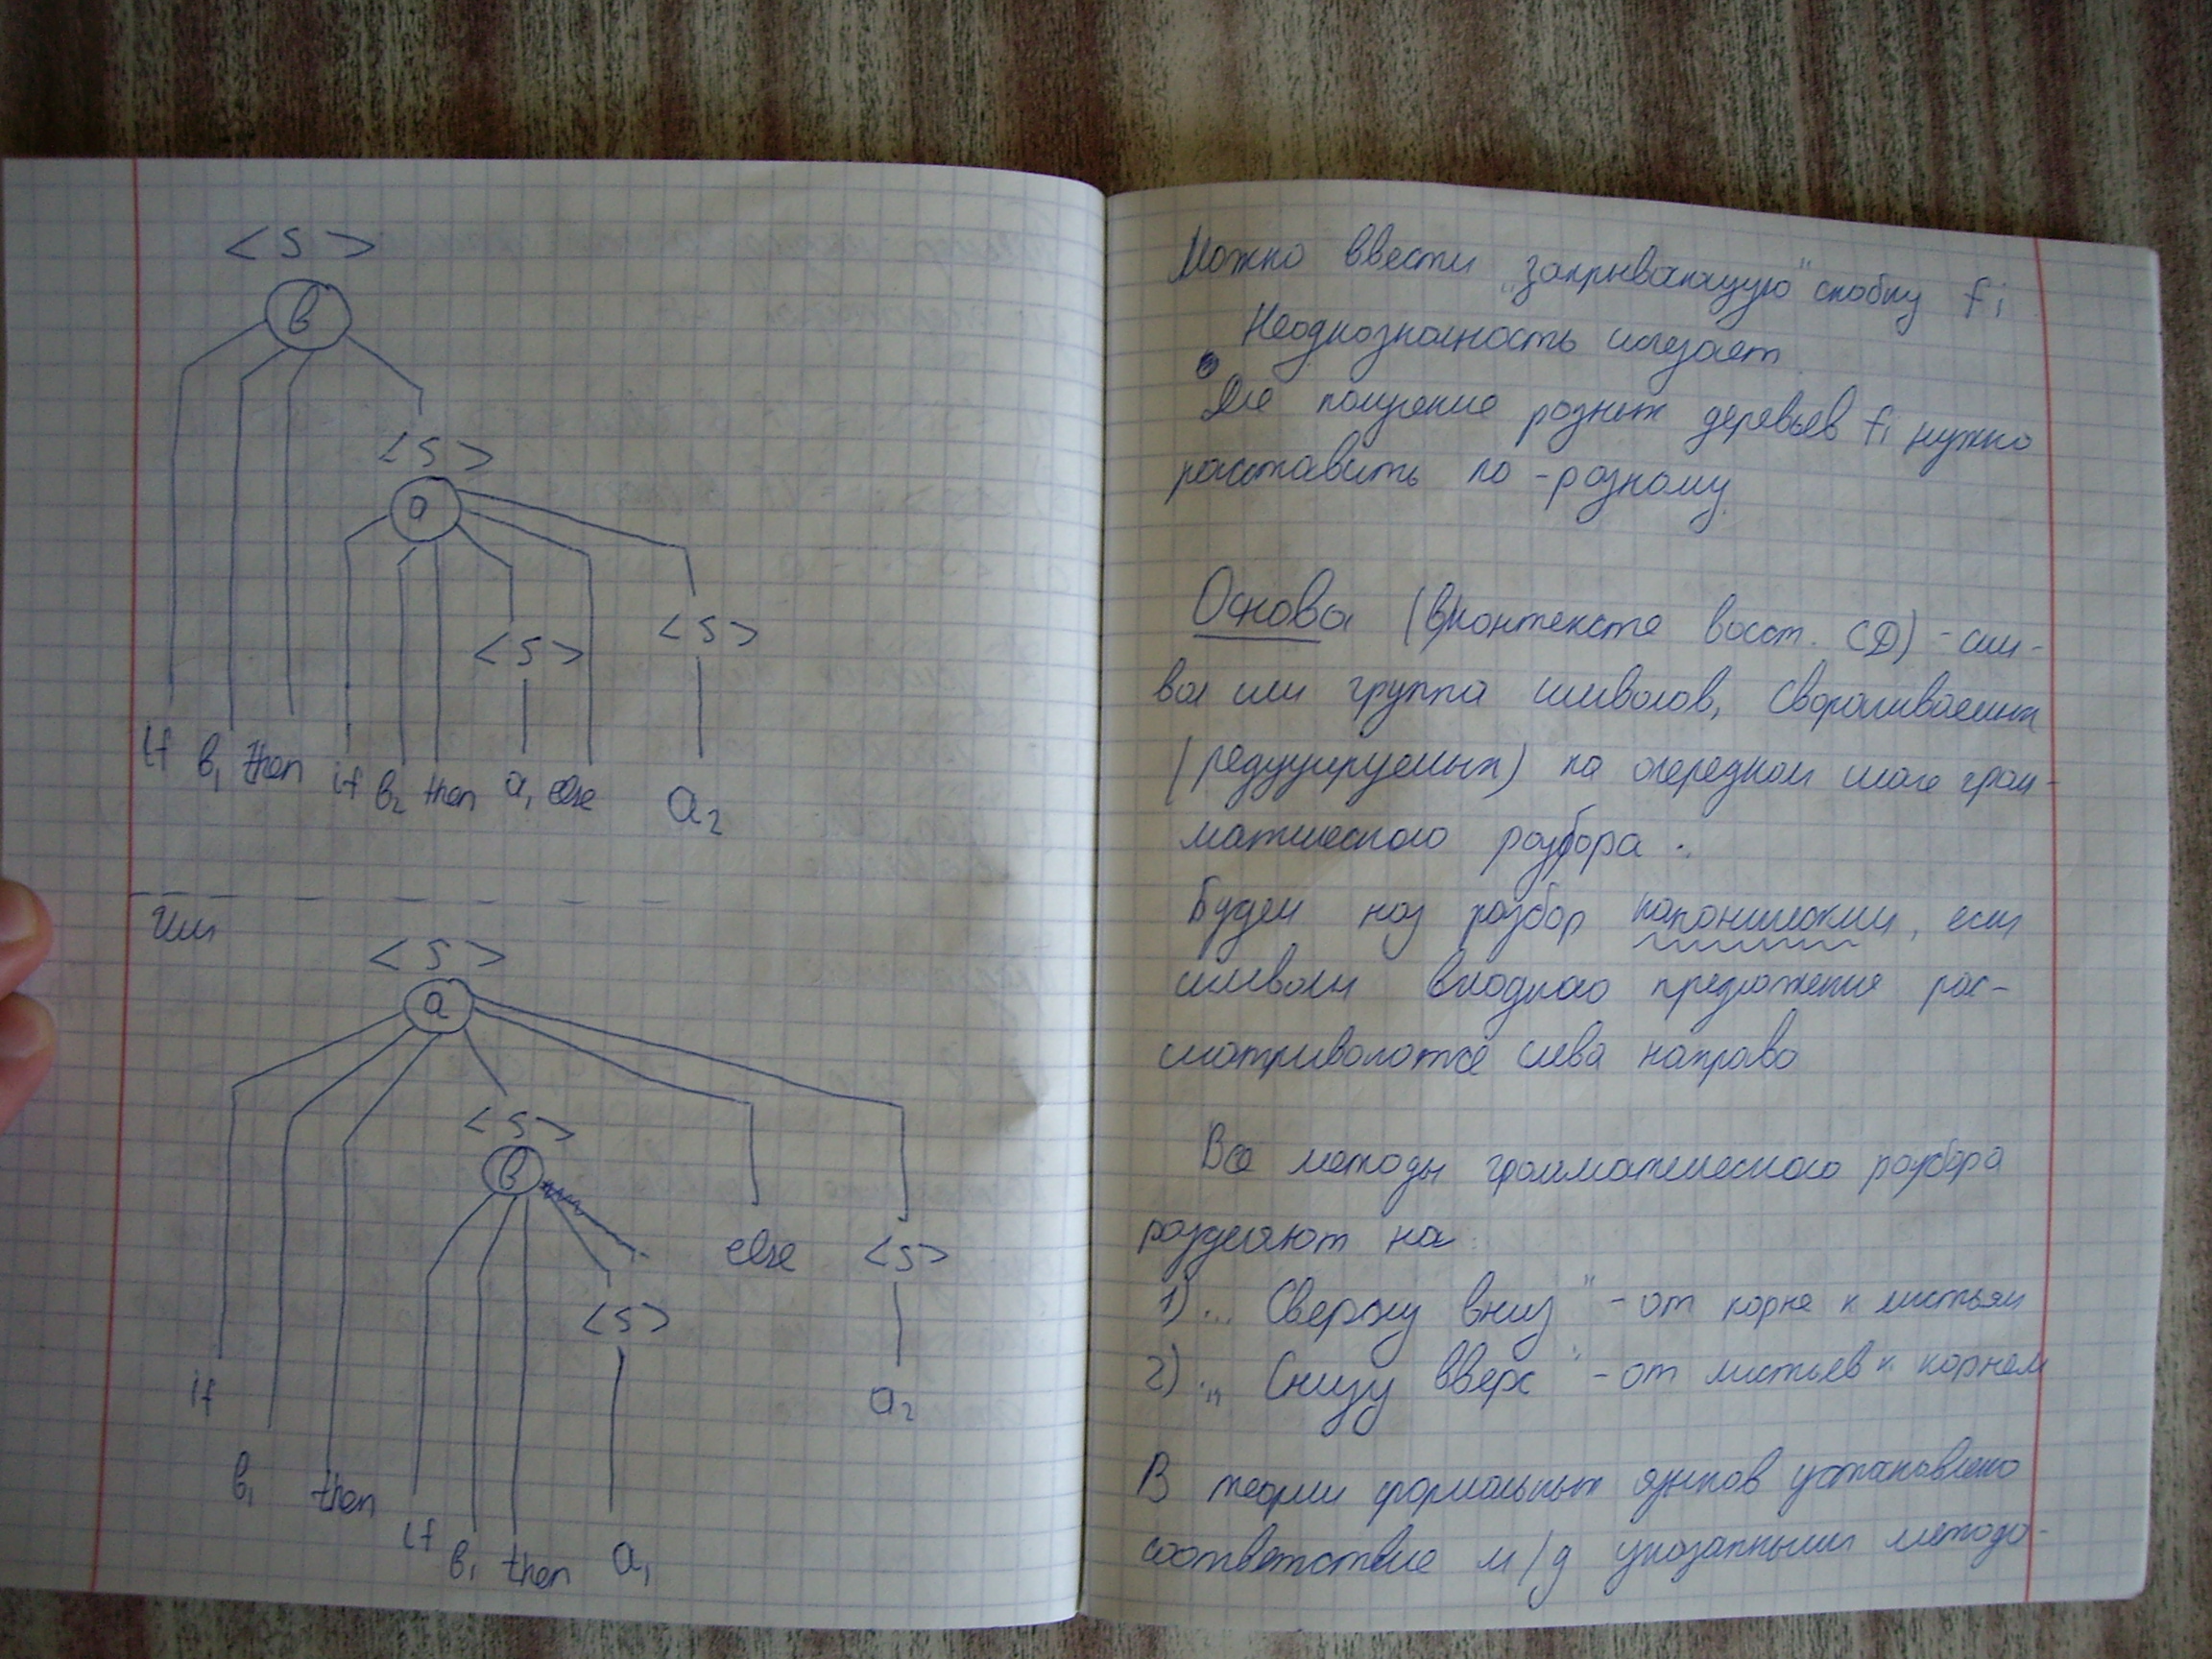 <S>
в
<S>
а
<S>
<S>
if в₁ then if в₂ then a₁ else a₂
Или
<S>
а
<S>
в
else <S>
<S>
if
a₂
в₁ then
if в₁ then a₁
Можно ввести „закрывающую" скобку fi
Неоднозначность исчезает
Для получение разных деревьев fi нужно
расставить по-разному.
Основа (в контексте восст. СД) - сим-
вол или группа символов, сворачиваемых
(редуцируемых) на очередном шаге грам-
матического разбора.
Будем наз разбор каноническим, если
символы входного предложения рас-
сматриваются слева направо
Все методы грамматического разбора
разделяют на:
1) „ Сверху вниз" - от корня к листьям
2) „ Снизу вверх" - от листьев к корнем
В теории формальных языков установлено
соответствие м/д указанными методо-